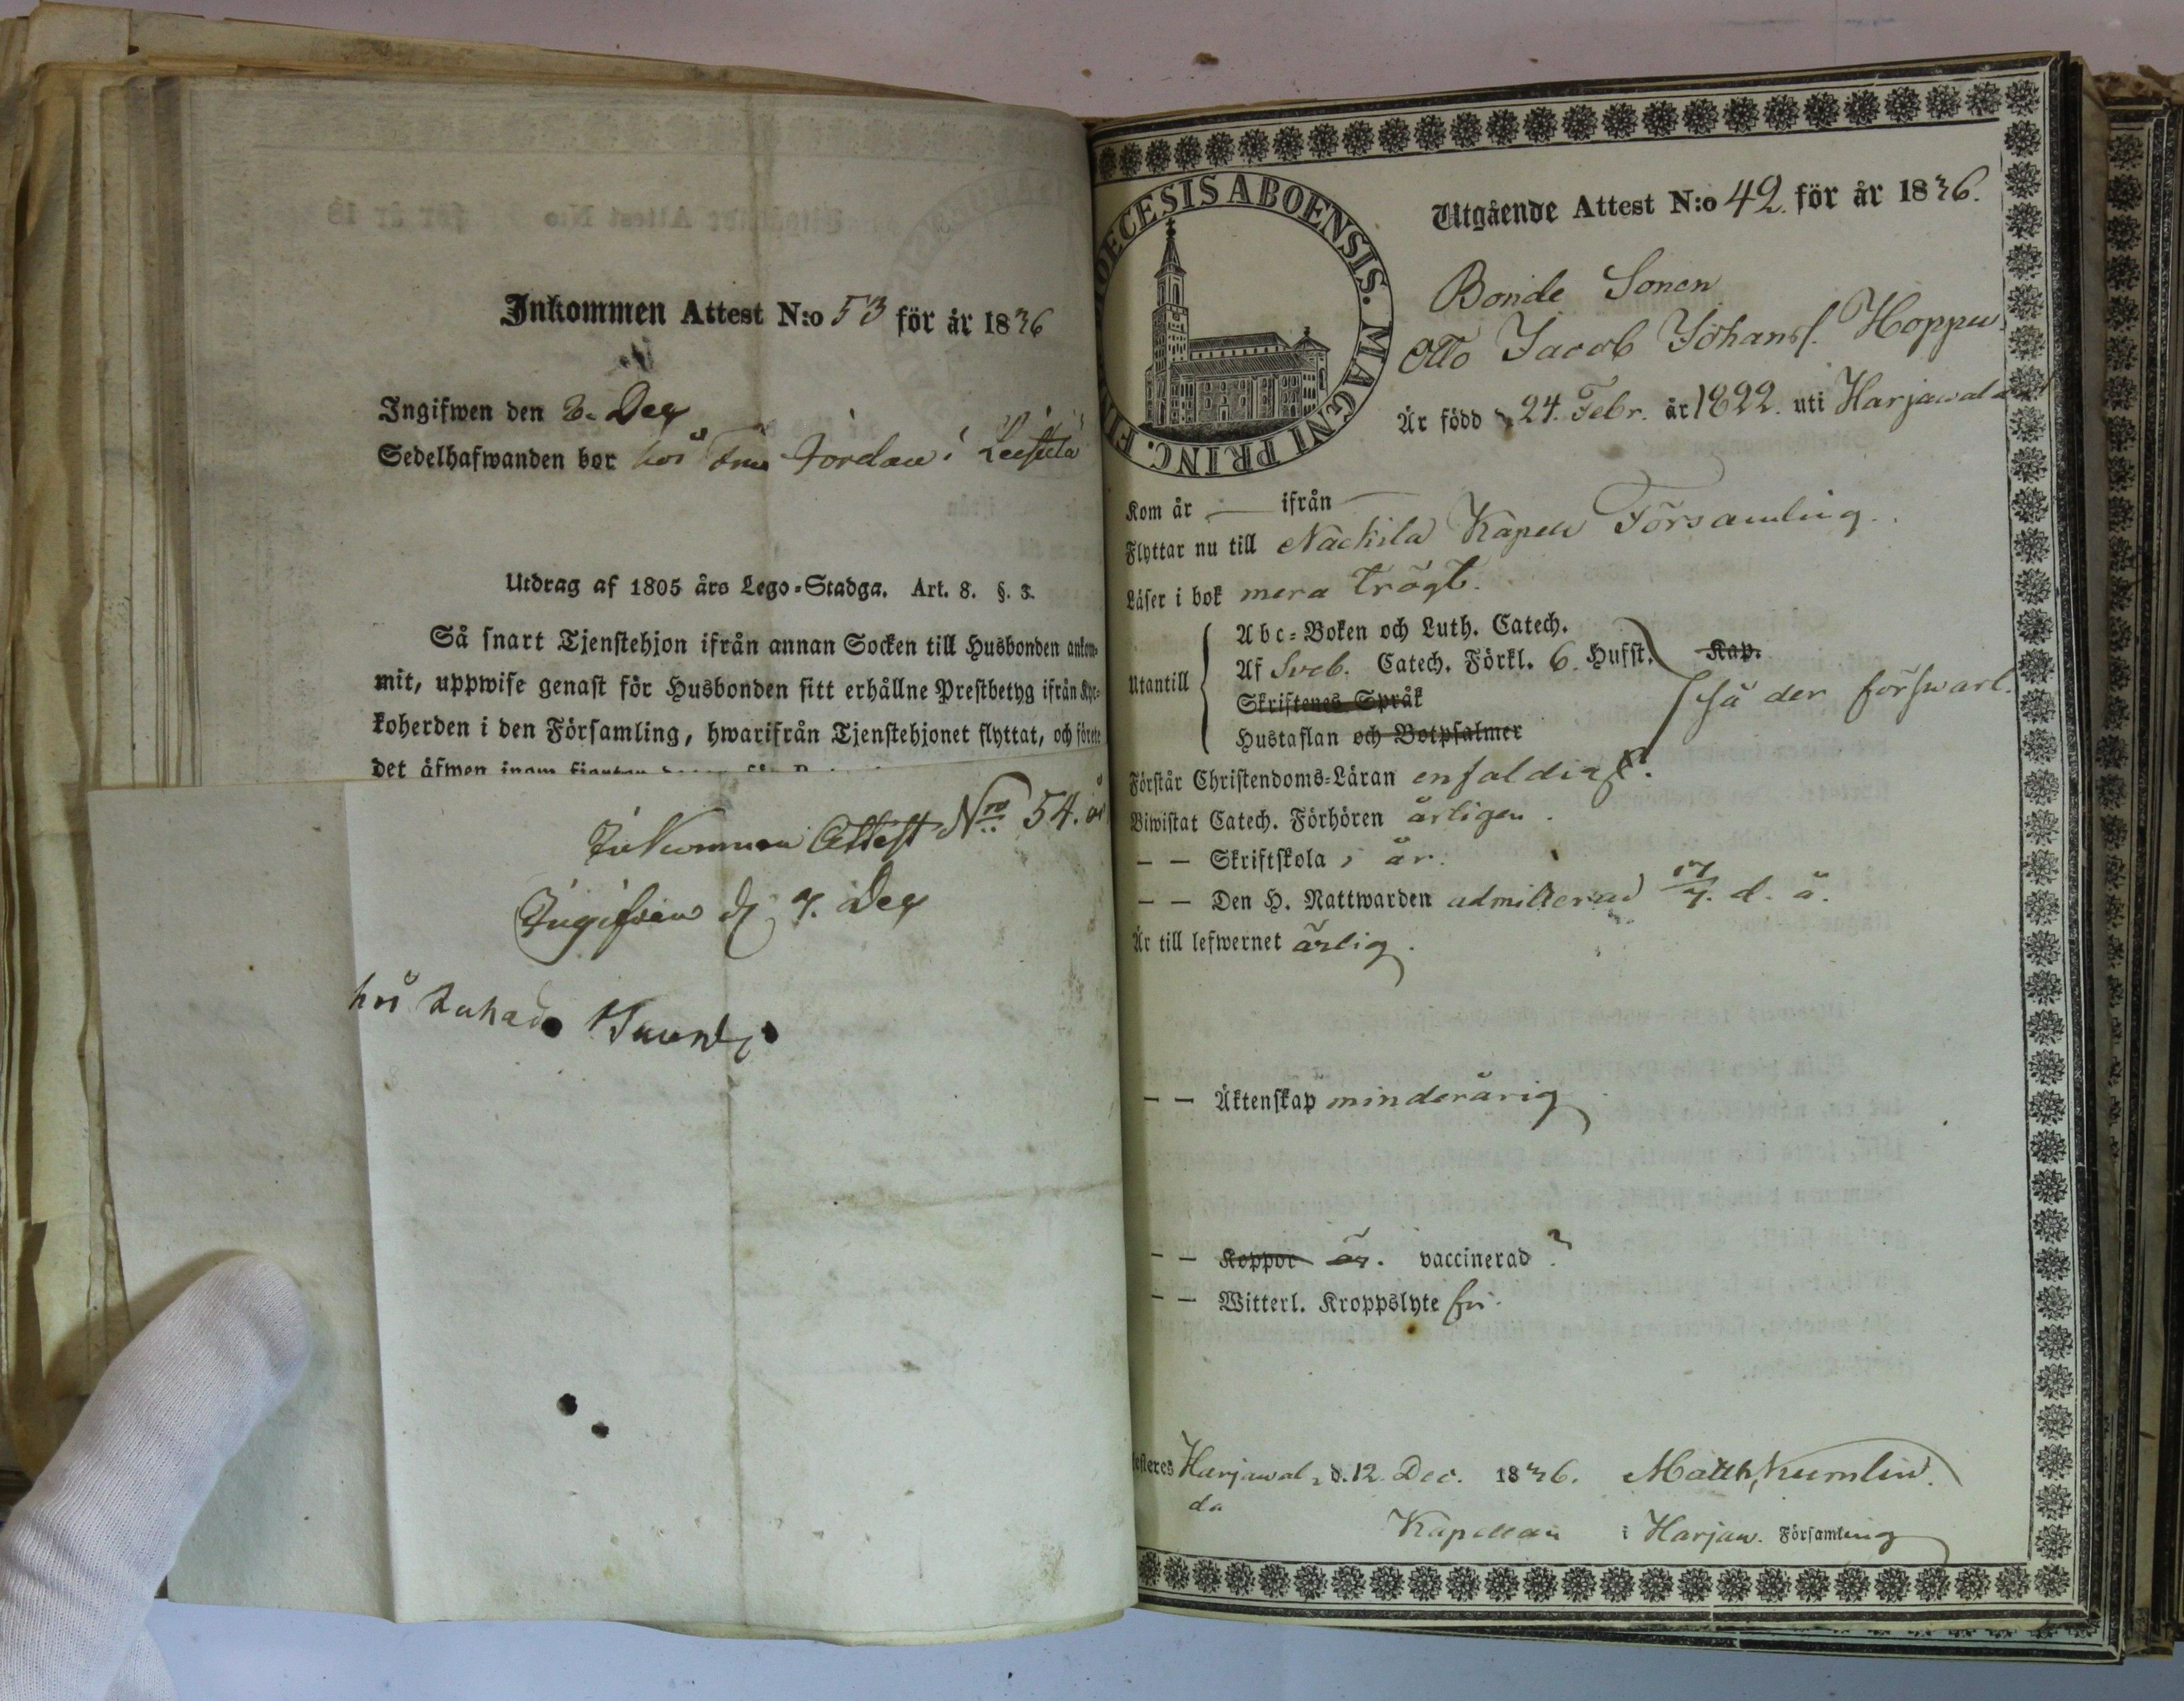 Inkommen Attest N:o 53 för år 1836
Ingifwen den 3. Dec
Sedelhafwanden bor hos i
Utdrag af 1805 års Lego-Stadga. Art. 8. §. 3.
Så snart Tjenstehjon ifrån annan Socken till Husbonden ankom-
mit, uppwise genast för Husbonden sitt erhållne Prestbetyg ifrån Kyr-
koherden i den Församling, hwarifrån Tjenstehjonet flyttat, och förete
det äfwen inom
Inkommen Attest Nro 54.
Ingifven d. 7. Dec
hos
DIOECESIS ABOENSIS. MAGNI PRINC.
Utgående Attest N:o 42. för år 1836.
Bonde Sonen
Otto Jacob Johanss. Hoppu
Är född d. 24. Febr. år 1822. uti Harjawala
Kom år — ifrån —
Flyttar nu till Nackila Kapell Församling.
Läser i bok mera trögt.
Utantill
Abc-Boken och Luth. Catech.
Af Sveb. Catech. Förkl. 6. Hufst. Kap.
Skriftenes Språk
Hustaflan och Botpsalmer
så der förswarl.
Förstår Christendoms-Läran enfaldigt.
Biwistat Catech. Förhören årligen.
— — Skriftskola i år.
— — Den H. Nattwarden admitterad 17/7. d. å.
Är till lefwernet ärlig.
— — Äktenskap minderårig
— — Koppor är. vaccinerad
— — Witterl. Kroppslyte fri.
Harjawal- d. 12. Dec. 1836. Matth. Kumlin.
da
Kapellan i Harjaw. Församling